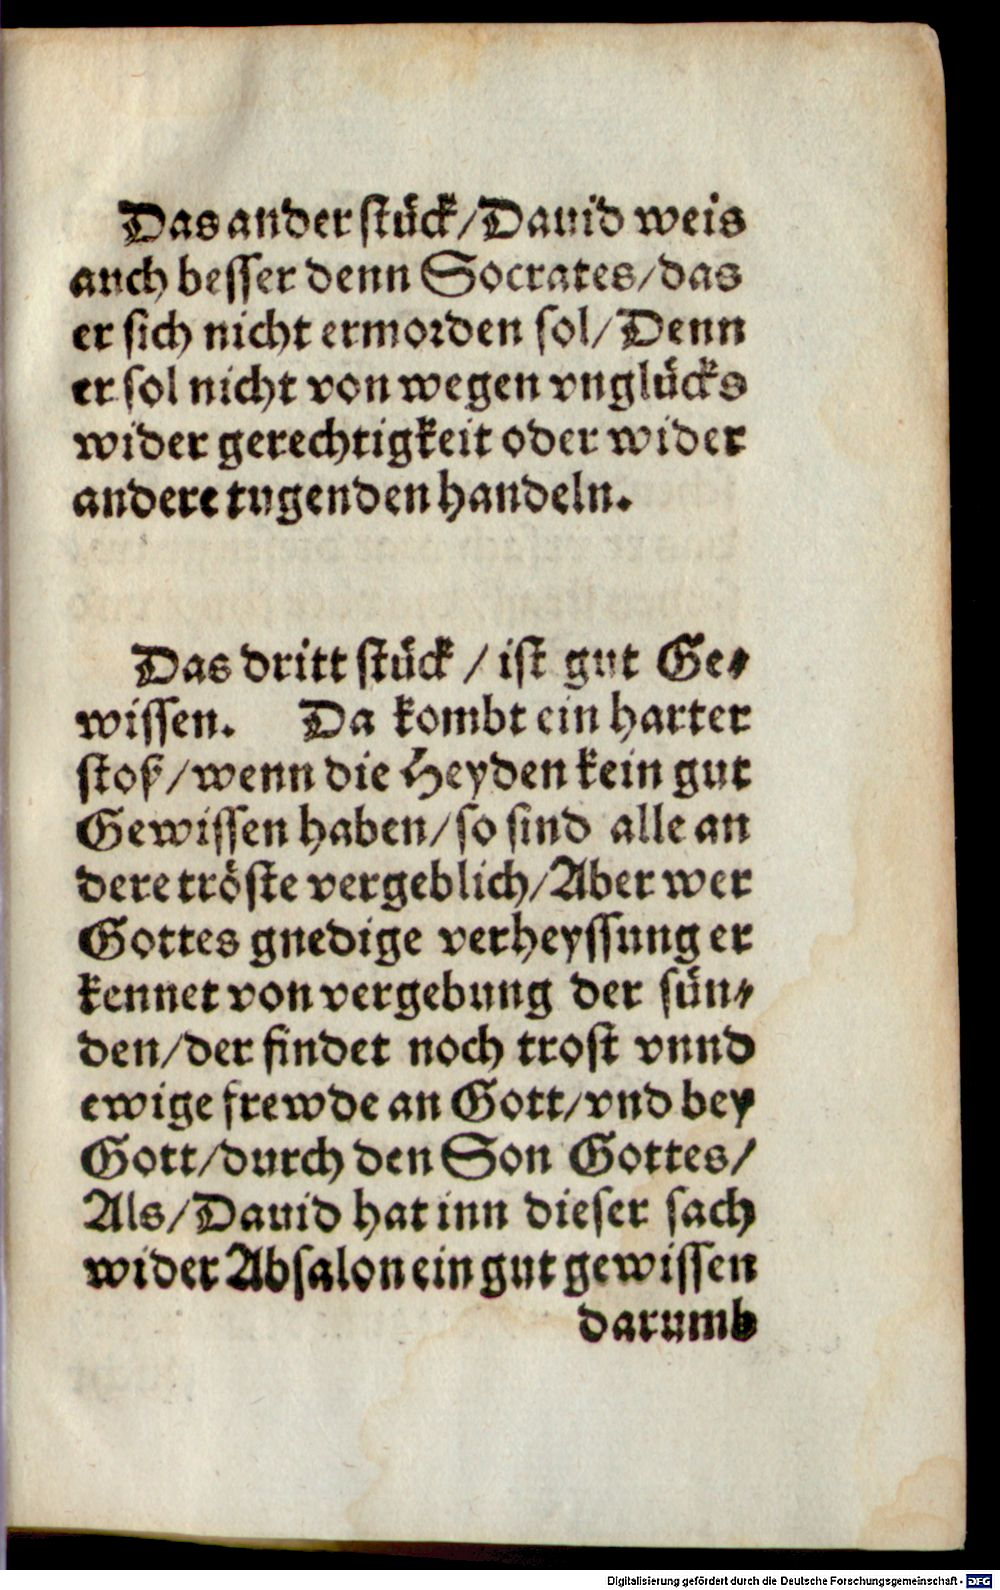 Das ander stück/Dauid weis
auch besser denn Socrates/das
er sich nicht ermorden sol/Denn
er sol nicht von wegen vnglücks
wider gerechtigkeit oder wider
andere tugenden handeln.
Das dritt stück / ist gut Ge-
wissen. Da kombt ein harter
stoß/wenn die Heyden kein gut
Gewissen haben/so sind alle an
dere tröste vergeblich/Aber wer
Gottes gnedige verheyssung er
kennet von vergebung der sün-
den/der findet noch trost vnnd
ewige frewde an Gott/vnd bey
Gott/durch den Son Gottes/
Als/Dauid hat inn dieser sach
wider Absalon ein gut gewissen
darumb
Digitalisierung gefördert durch die Deutsche Forschungsgemeinschaft - DFG